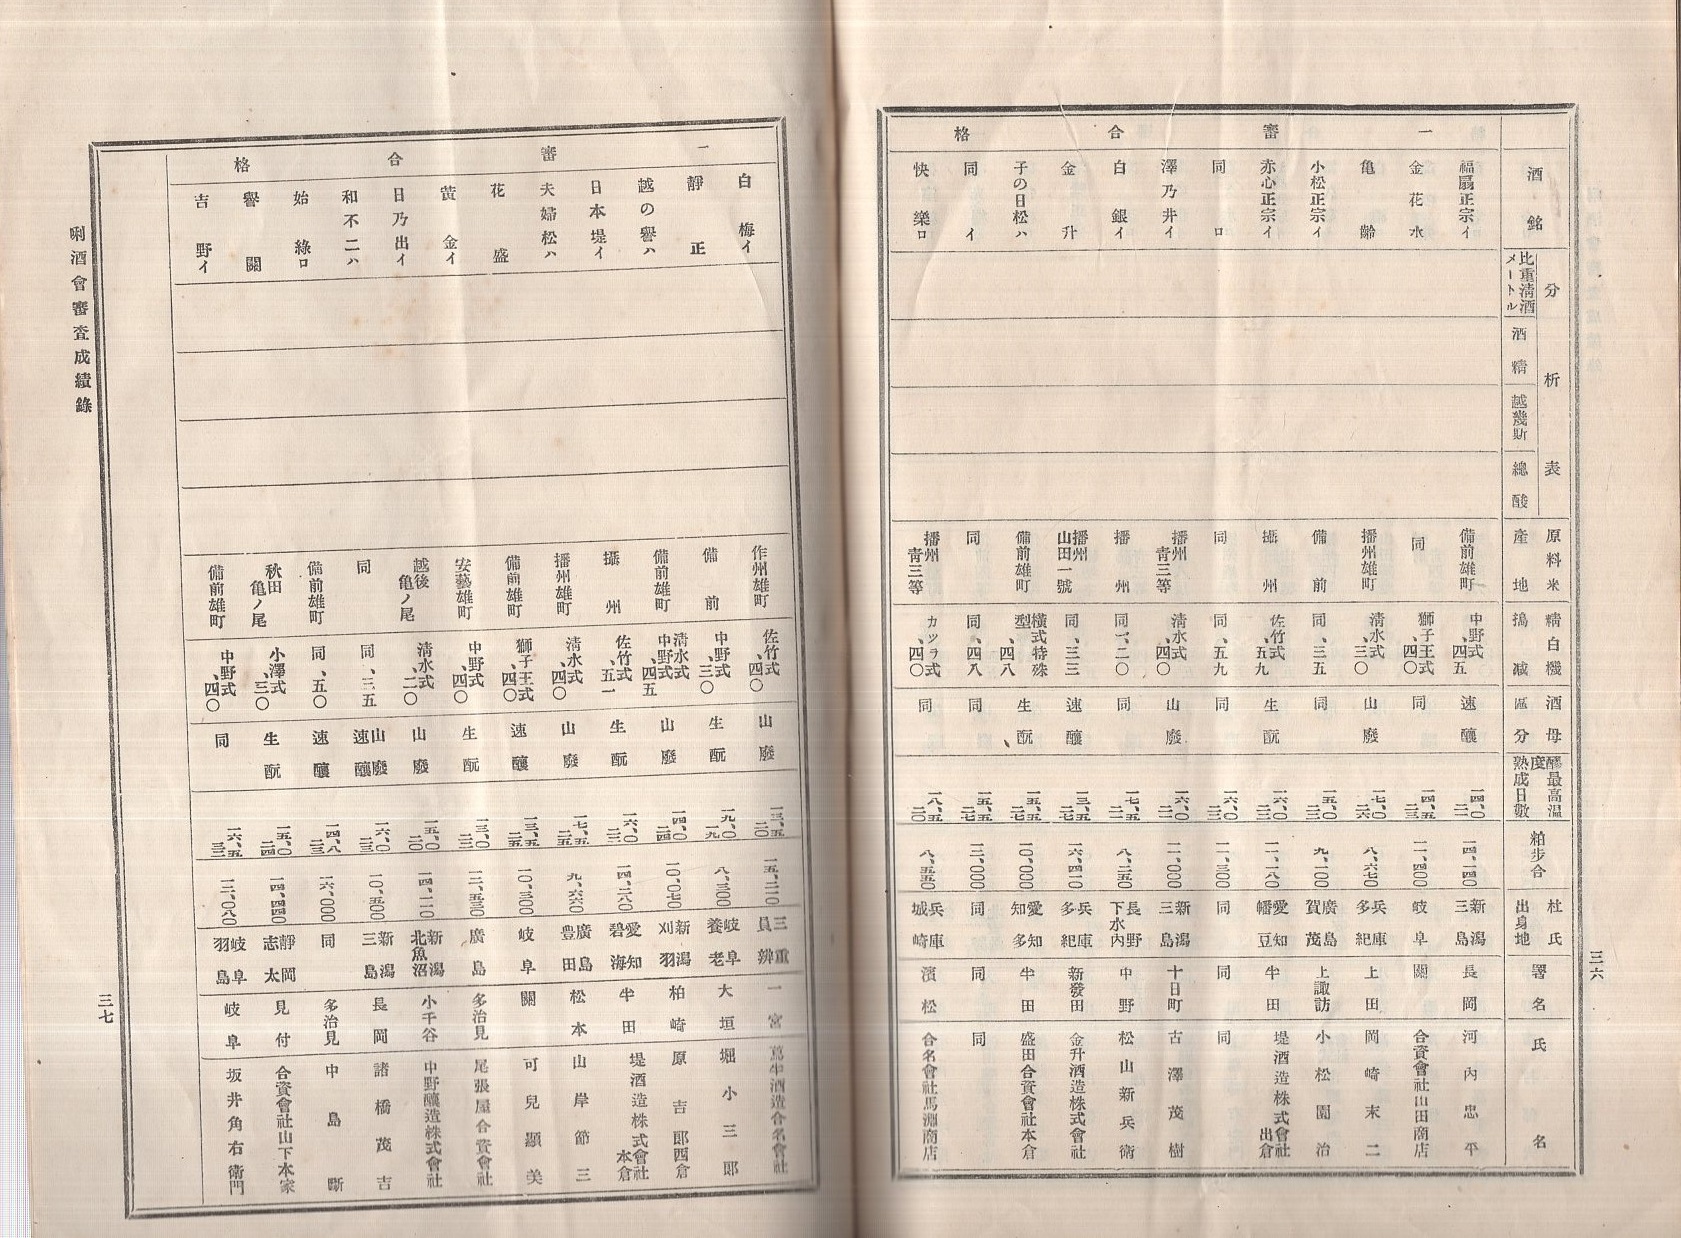 三六
酒銘
分析表
比重清酒メートル
酒精
越幾斯
總酸
原料米產地
精白機搗減
酒母區分
醪最高溫度熟成日數
粕步合
杜氏出身地
署名
氏名
一審合格
福扇正宗イ 備前雄町 中野式、四五 速釀 一四、〇 二一 一四、一四〇 新潟三島 長岡 河內忠平
金花水 同 獅子王式、四〇 同 一四、五 二三 一一、四〇〇 岐阜 關 合資會社山田商店
亀齡 播州雄町 清水式、三〇 山廢 一七、〇 二六 八、六七〇 兵庫多紀 上田 岡崎末二
小松正宗イ 備前 同、三五 同 一五、〇 三〇 九、一〇〇 廣島賀茂 上諏訪 小松園治
赤心正宗イ 攝州 佐竹式、五九 生酛 一六、〇 二三 一一、一八〇 愛知幡豆 半田 堤酒造株式會社出倉
同ロ 同 同、五九 同 一六、〇 三〇 一一、三〇〇 同 同 同
澤乃井イ 播州靑三等 清水式、四〇 山廢 一六、〇 二一 一一、〇〇〇 新潟三島 十日町 古澤茂樹
白銀イ 播州 同、二〇 同 一七、五 二一 八、二五〇 長野下水內 中野 松山新兵衛
金升 播州山田一號 同、三三 速釀 一三、五 二七 一六、四一〇 兵庫多紀 新發田 金升酒造株式會社
子の日松ハ 備前雄町 橫式特殊型、四八 生酛 一五、五 二七 一〇、〇〇〇 愛知知多 半田 盛田合資會社本倉
同イ 同 同、四八 同 一五、五 二七 一二、〇〇〇 同 同 同
快樂ロ 播州靑三等 カツラ式、四〇 同 一八、五 二〇 八、五五〇 兵庫城崎 濱松 合名會社馬淵商店
一審合格
白梅イ 作州雄町 佐竹式、四〇 山廢 一三、五 二〇 一五、二一〇 三重員辨 一宮 酒造合名會社
靜正 備前 中野式、三〇 生酛 一九、〇 一九 八、三〇〇 岐阜養老 大垣 堀小三郎
越の譽ハ 備前雄町 清水式中野式、四五 山廢 一四、〇 二四 一〇、〇七〇 新潟刈羽 柏崎 原吉郎西倉
日本堤イ 攝州 佐竹式、五一 生酛 一六、〇 二三 一四、二八〇 愛知碧海 半田 堤酒造株式會社本倉
夫婦松ハ 播州雄町 清水式、四〇 山廢 一七、五 二五 九、六六〇 廣島豐田 松本 山岸節三
花盛 備前雄町 獅子王式、四〇 速釀 一三、五 二五 一〇、三〇〇 岐阜 關 可兒顯美
黃金イ 安藝雄町 中野式、四〇 生酛 一三、〇 二三 一二、五三〇 廣島 多治見 尾張屋合資會社
日乃出イ 越後亀ノ尾 清水式、二〇 山廢 一五、〇 二〇 一四、一一〇 新潟北魚沼 小千谷 中野釀造株式會社
和不二ハ 同 同、三五 山廢速釀 一六、〇 二三 一〇、五〇〇 新潟三島 長岡 諸橋茂吉
始綠ロ 備前雄町 同、五〇 速釀 一四、八 二三 一六、〇〇〇 同 多治見 中島斷
譽關 秋田亀ノ尾 小澤式、三〇 生酛 一五、〇 二四 一四、四四〇 靜岡志太 見付 合資會社山下本家
吉野イ 備前雄町 中野式、四〇 同 一六、五 二三 一二、〇八〇 岐阜羽島 岐阜 坂井角右衛門
唎酒會審査成績錄
三七